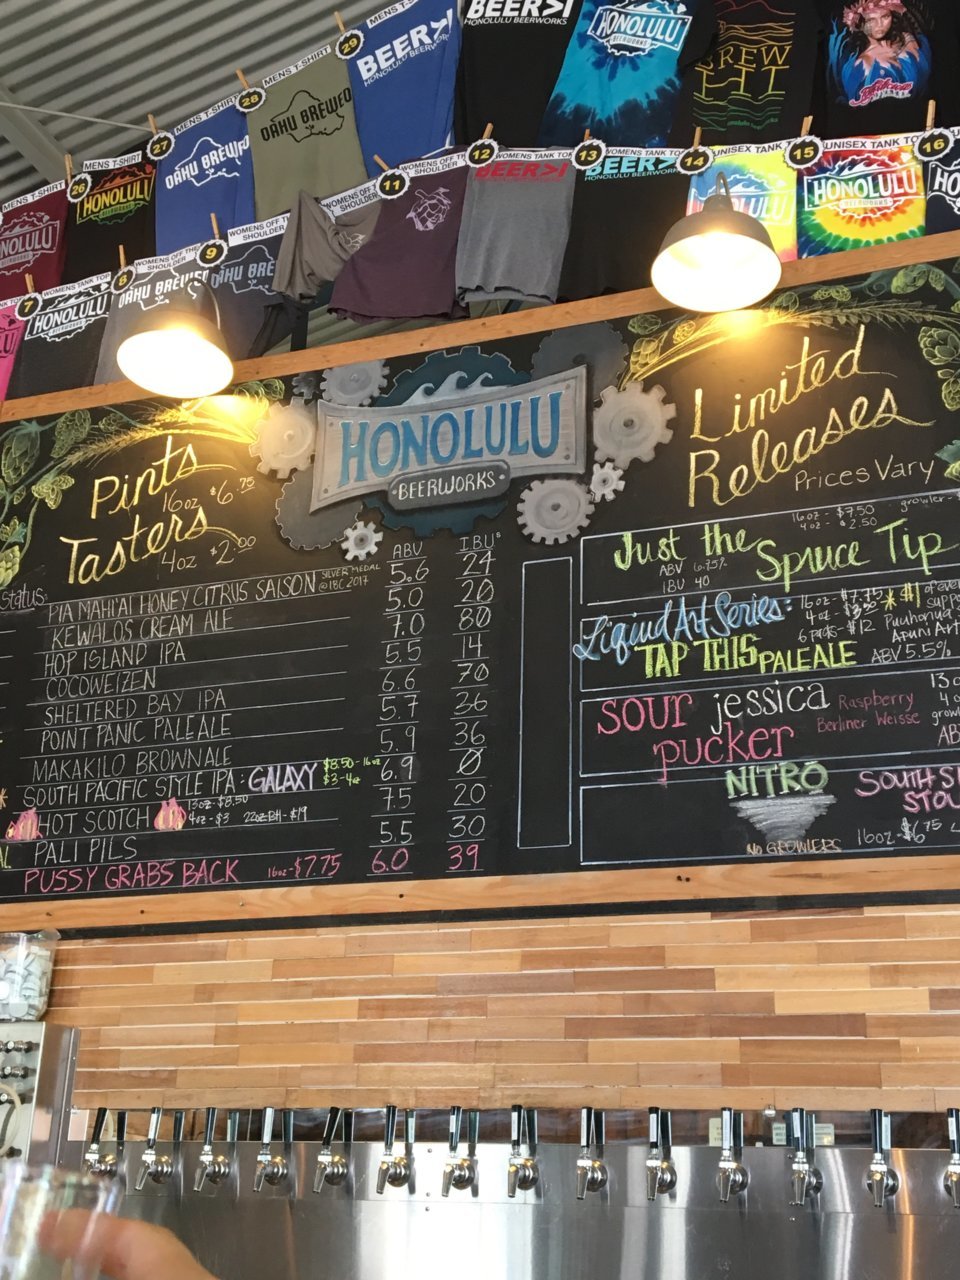 MENS T-SHIRT
29
BEER>I
HONOLULU BEERWORKS
BEER>I
HONOLULU BEERWORKS
HONOLULU
BEERWORKS
BREW
LIT
MENS T-SHIRT
28
OAHU BREWED
MENS T-SHIRT
27
OAHU BREWED
MENS T-SHIRT
26
HONOLULU
T-SHIRT
HONOLULU
BEERWORKS
WOMENS OFF THE SHOULDER
11
WOMENS OFF THE SHOULDER
12
WOMENS TANK TOP
BEER>I
HONOLULU BEERWORKS
13
WOMENS TANK TOP
BEER>I
HONOLULU BEERWORKS
14
UNISEX TANK TOP
HONOLULU
15
UNISEX TANK TOP
HONOLULU
BEERWORKS
16
7
WOMENS TANK TOP
HONOLULU
BEERWORKS
8
WOMENS OFF THE SHOULDER
OAHU BREWED
9
WOMENS OFF THE SHOULDER
OAHU BREWED
HONOLULU
BEERWORKS
Pints
16oz $6.75
Tasters
4oz $2.00
Status:
ABV IBU's
PIA MAHI'AI HONEY CITRUS SAISON SILVER MEDAL @ IBC 2017 5.6 24
KEWALOS CREAM ALE 5.0 20
HOP ISLAND IPA 7.0 80
COCOWEIZEN 5.5 14
SHELTERED BAY IPA 6.6 70
POINT PANIC PALE ALE 5.7 36
MAKAKILO BROWN ALE 5.9 36
SOUTH PACIFIC STYLE IPA: GALAXY $8.50-16oz $3-4oz 6.9 0
HOT SCOTCH 13oz-$8.50 4oz-$3 22oz BH-$19 7.5 20
PALI PILS 5.5 30
PUSSY GRABS BACK 16oz-$7.75 6.0 39
Limited
Releases
Prices Vary
16oz-$7.50 growler-
4oz-$2.50
Just the Spruce Tip
ABV 6.75%
IBU 40
Liquid Art Series: 16oz-$7.75
6packs-$12
TAP THIS PALE ALE ABV 5.5%
#1 of
sour jessica
pucker
Raspberry
Berliner Weisse
NITRO
NO GROWLERS
16oz-$6.75